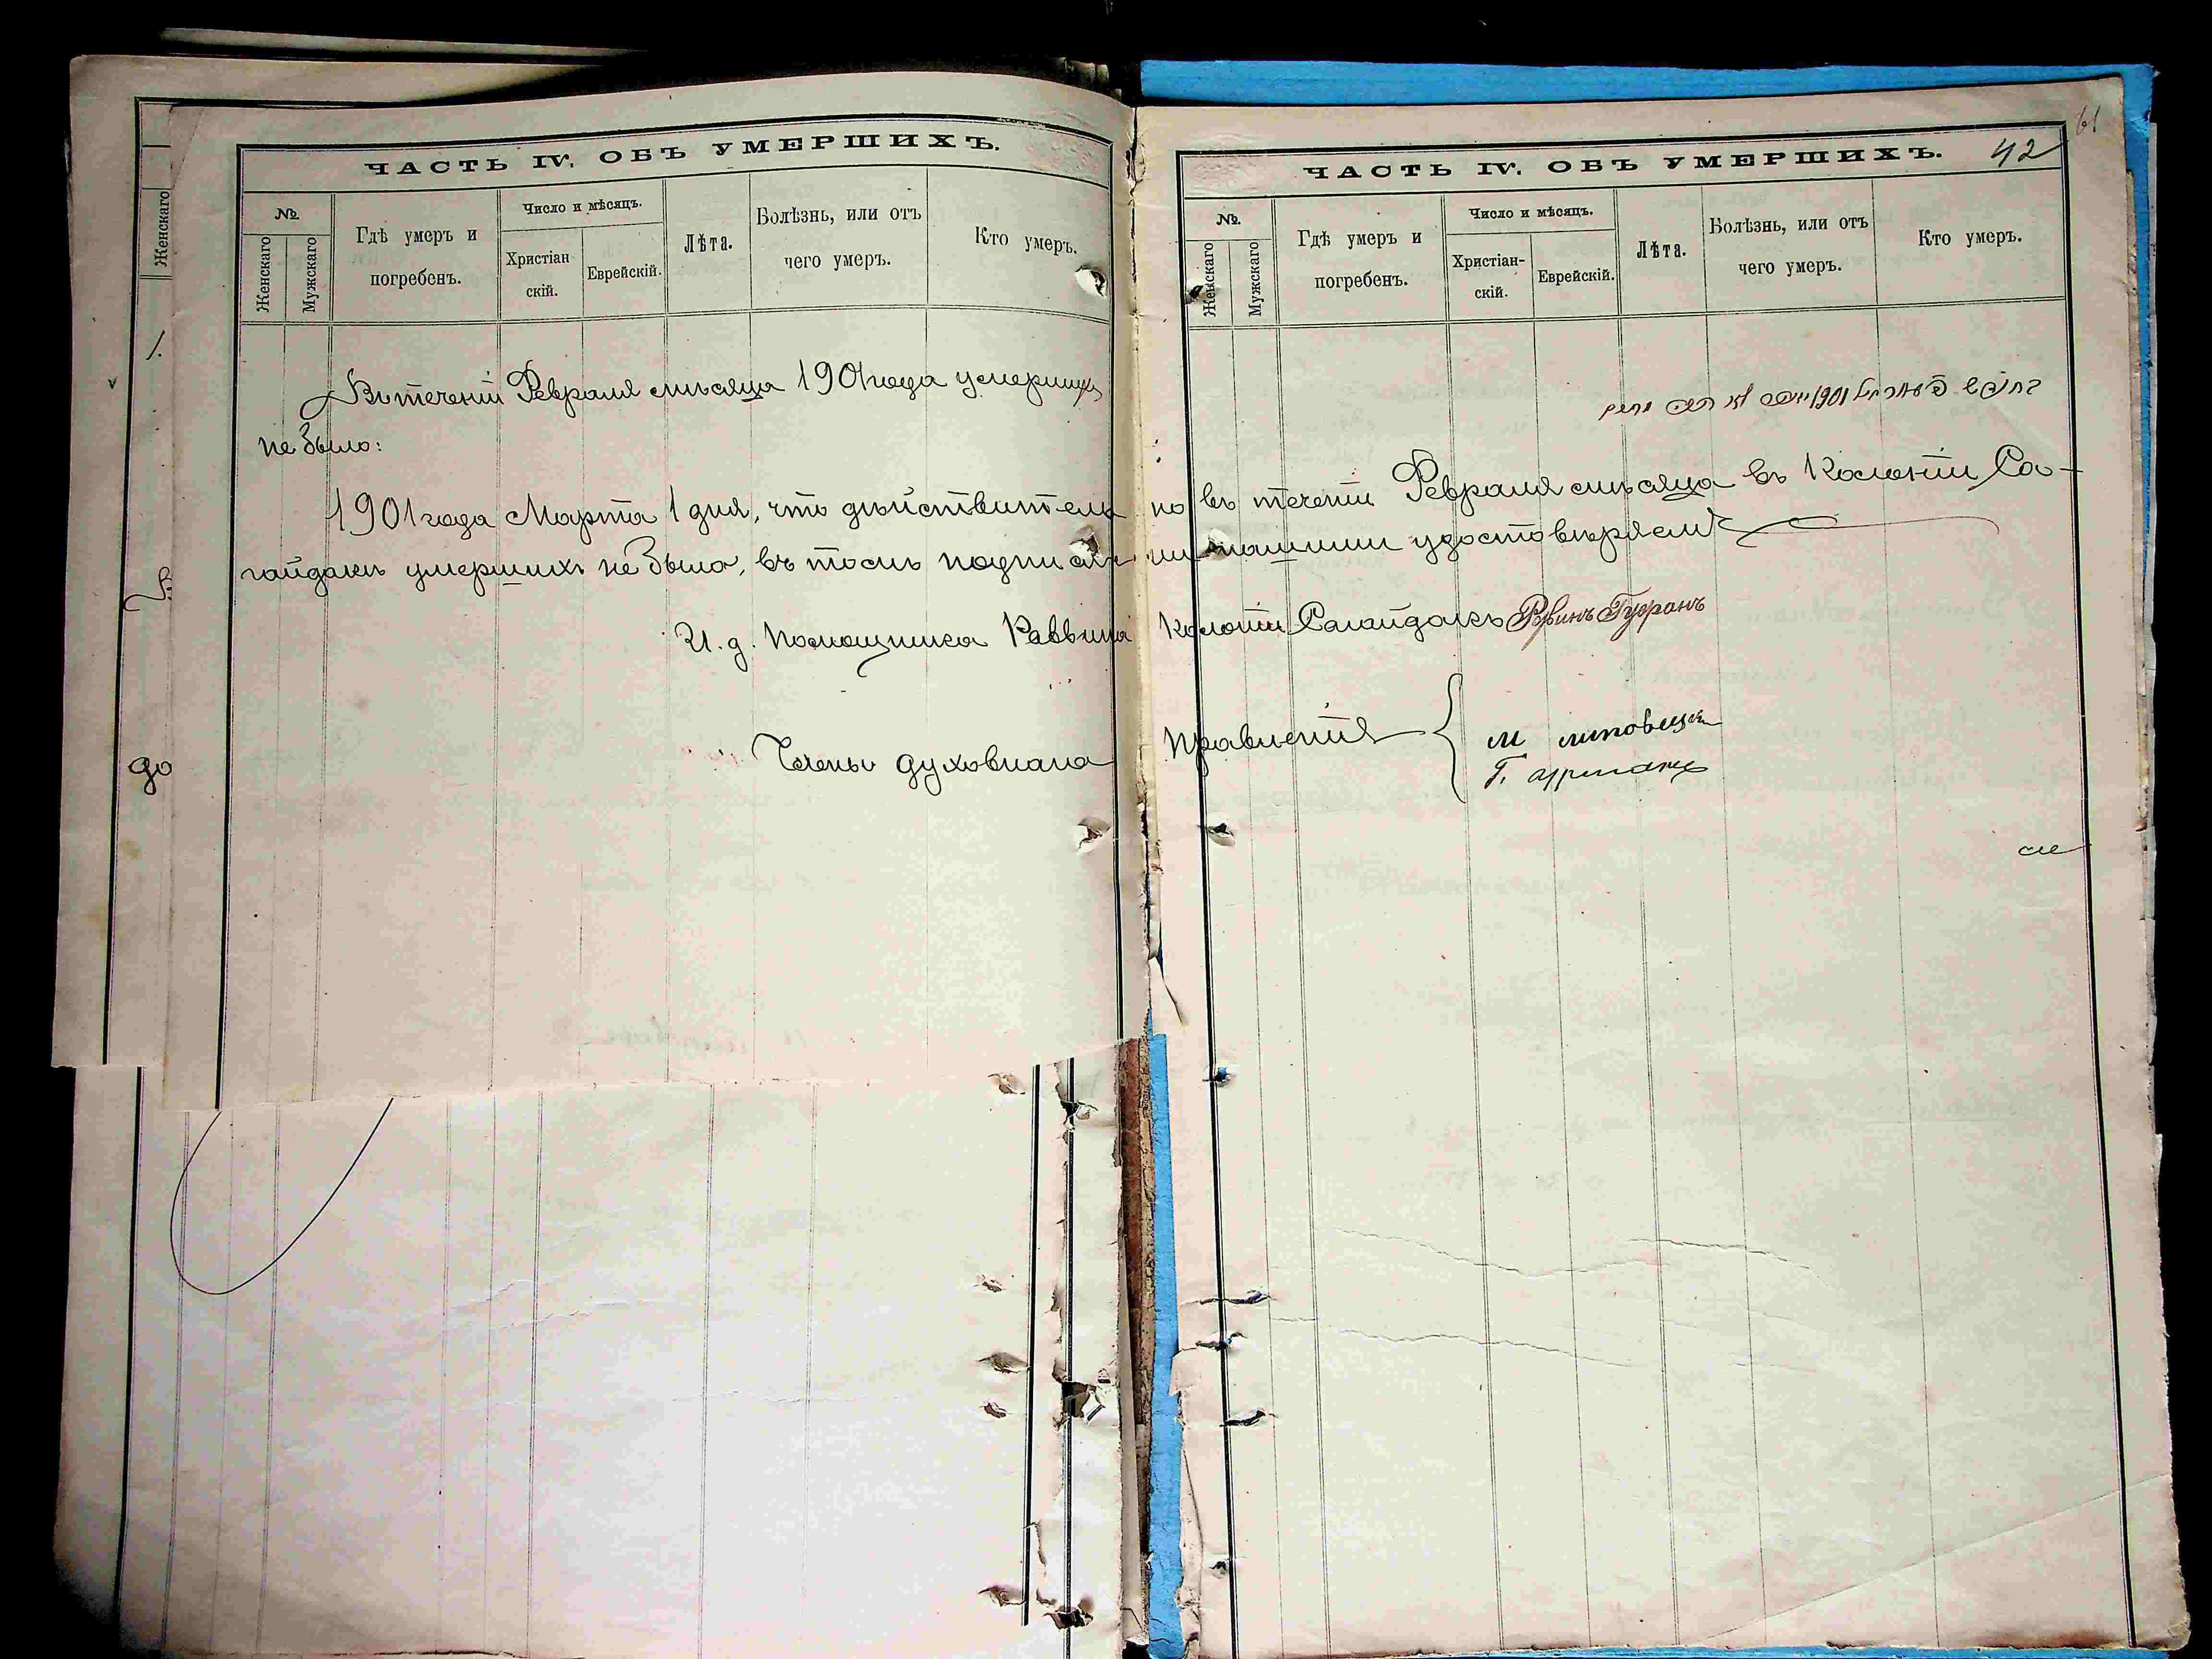 ЧАСТЬ IV. ОБЪ УМЕРШИХЪ.
№
Женскаго
Мужскаго
Гдѣ умеръ и
погребенъ.
Число и мѣсяцъ.
Христіан
скій.
Еврейскій.
Лѣта.
Болѣзнь, или отъ
чего умеръ.
Кто умеръ.
Женскаго
1.
до
Въ теченіи Февраля мѣсяца 1901 года умершихъ
не было:
1901 года Марта 1 дня, что дѣйствитель
гайдакъ умершихъ не было, въ томъ подпися
И. д. Помощника Раввина
Члены духовнаго
61
ЧАСТЬ IV. ОБЪ УМЕРШИХЪ. 42
№.
Женскаго
Мужскаго
Гдѣ умеръ и
погребенъ.
Число и мѣсяцъ.
Христіан-
скій.
Еврейскій.
Лѣта.
Болѣзнь, или отъ
чего умеръ.
Кто умеръ.
1901
но въ теченіи Февраля мѣсяца въ Колоніи Са-
ми нашими удостовѣряемъ
Колоніи Сагайдакъ
Правленія
М
Г.